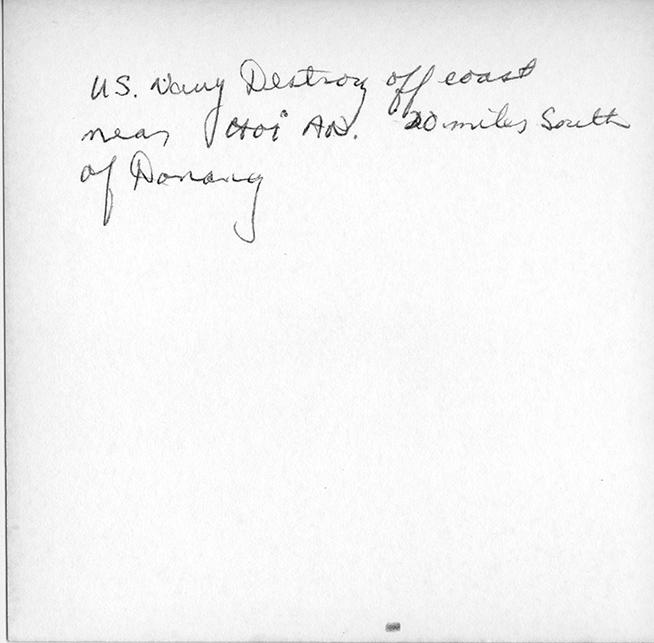 US. Navy Destroy off coast
near Hoi AN. 20 miles South
of Danang